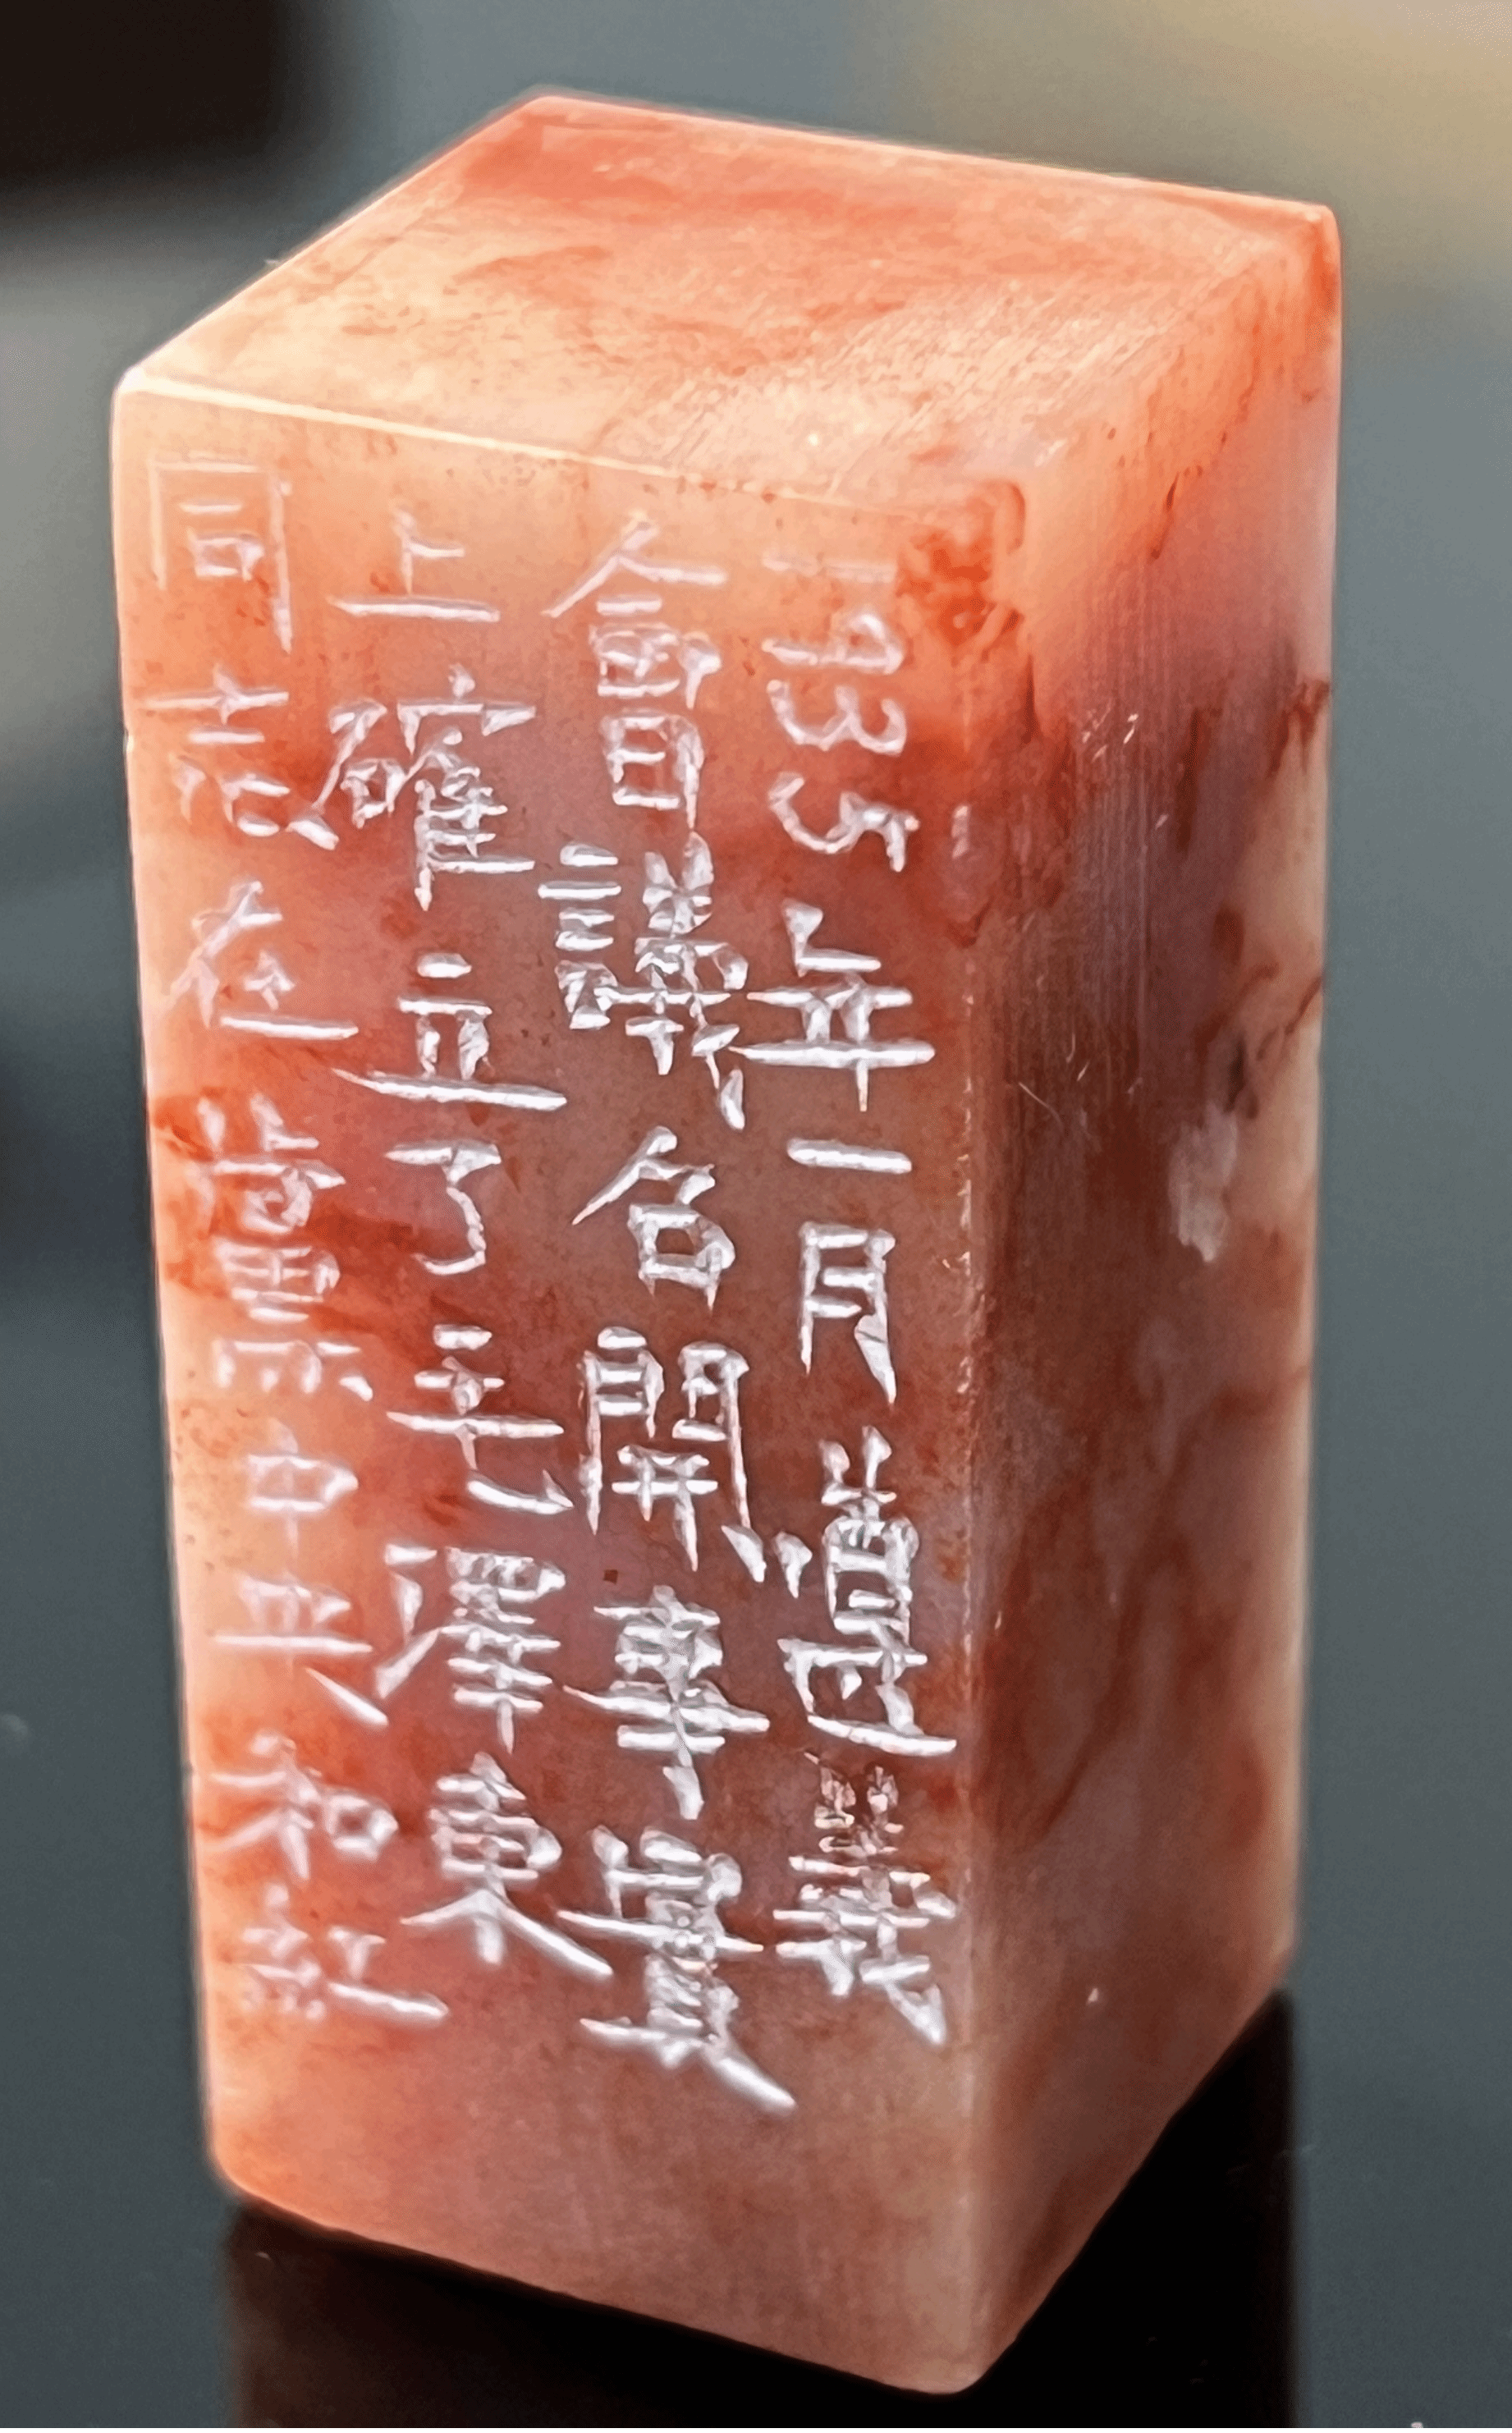 1935年一月遵義
會議召開事實
上確立了毛澤東
同志在黨中央和紅